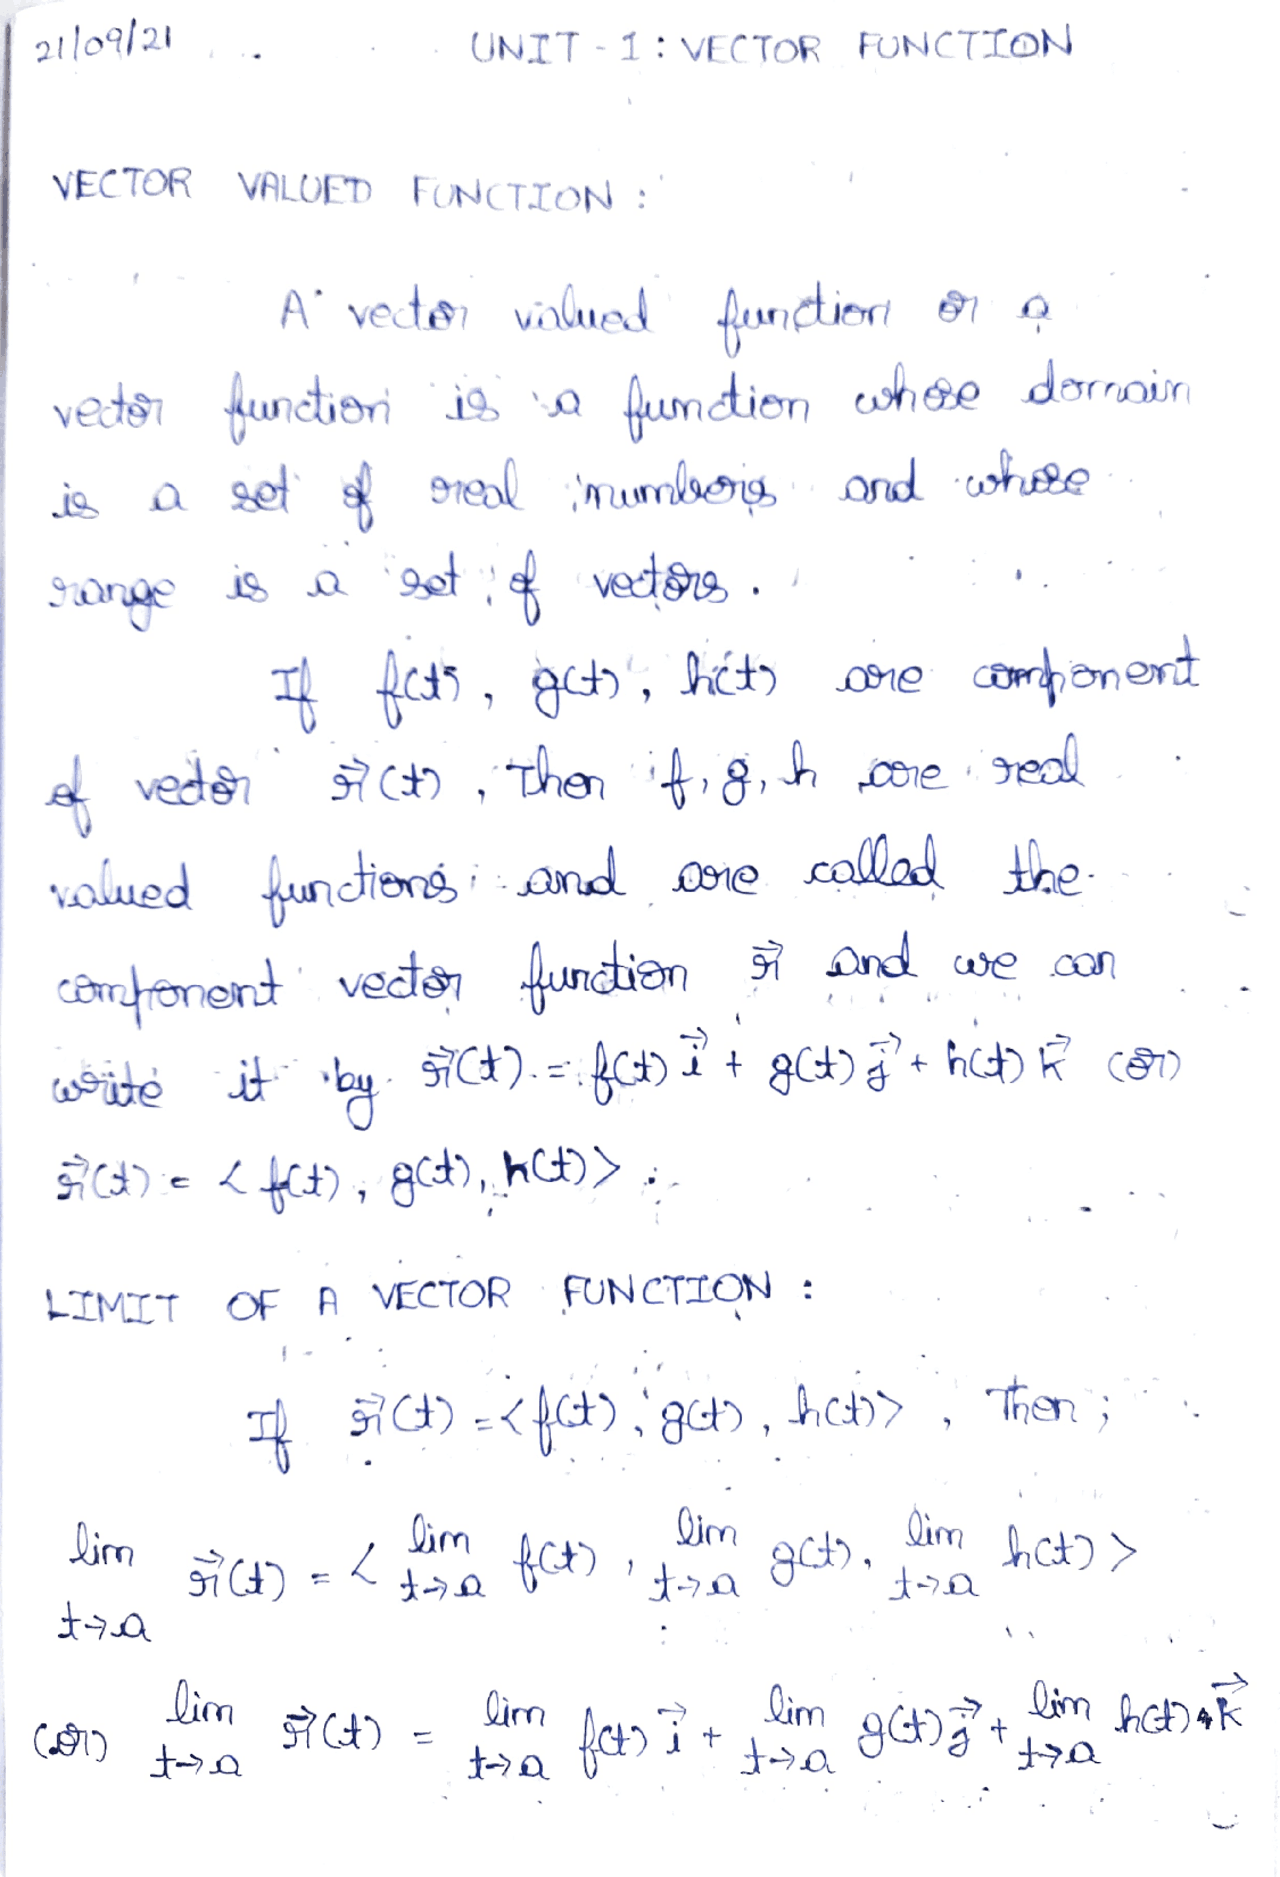 21/09/21 UNIT - 1 : VECTOR FUNCTION
VECTOR VALUED FUNCTION :
A vector valued function or a
vector function is a function whose domain
is a set of real numbers and whose
range is a set of vectors.
If f(t), g(t), h(t) are component
of vector r⃗(t), Then f, g, h are real
valued functions and are called the
component vector function r⃗ and we can
write it by r⃗(t) = f(t) i⃗ + g(t) j⃗ + h(t) k⃗ (or)
r⃗(t) = < f(t), g(t), h(t) > .
LIMIT OF A VECTOR FUNCTION :
If r⃗(t) = < f(t), g(t), h(t) > , Then ;
lim t→a r⃗(t) = < lim t→a f(t) , lim t→a g(t), lim t→a h(t) >
(or) lim t→a r⃗(t) = lim t→a f(t) i⃗ + lim t→a g(t) j⃗ + lim t→a h(t) k⃗